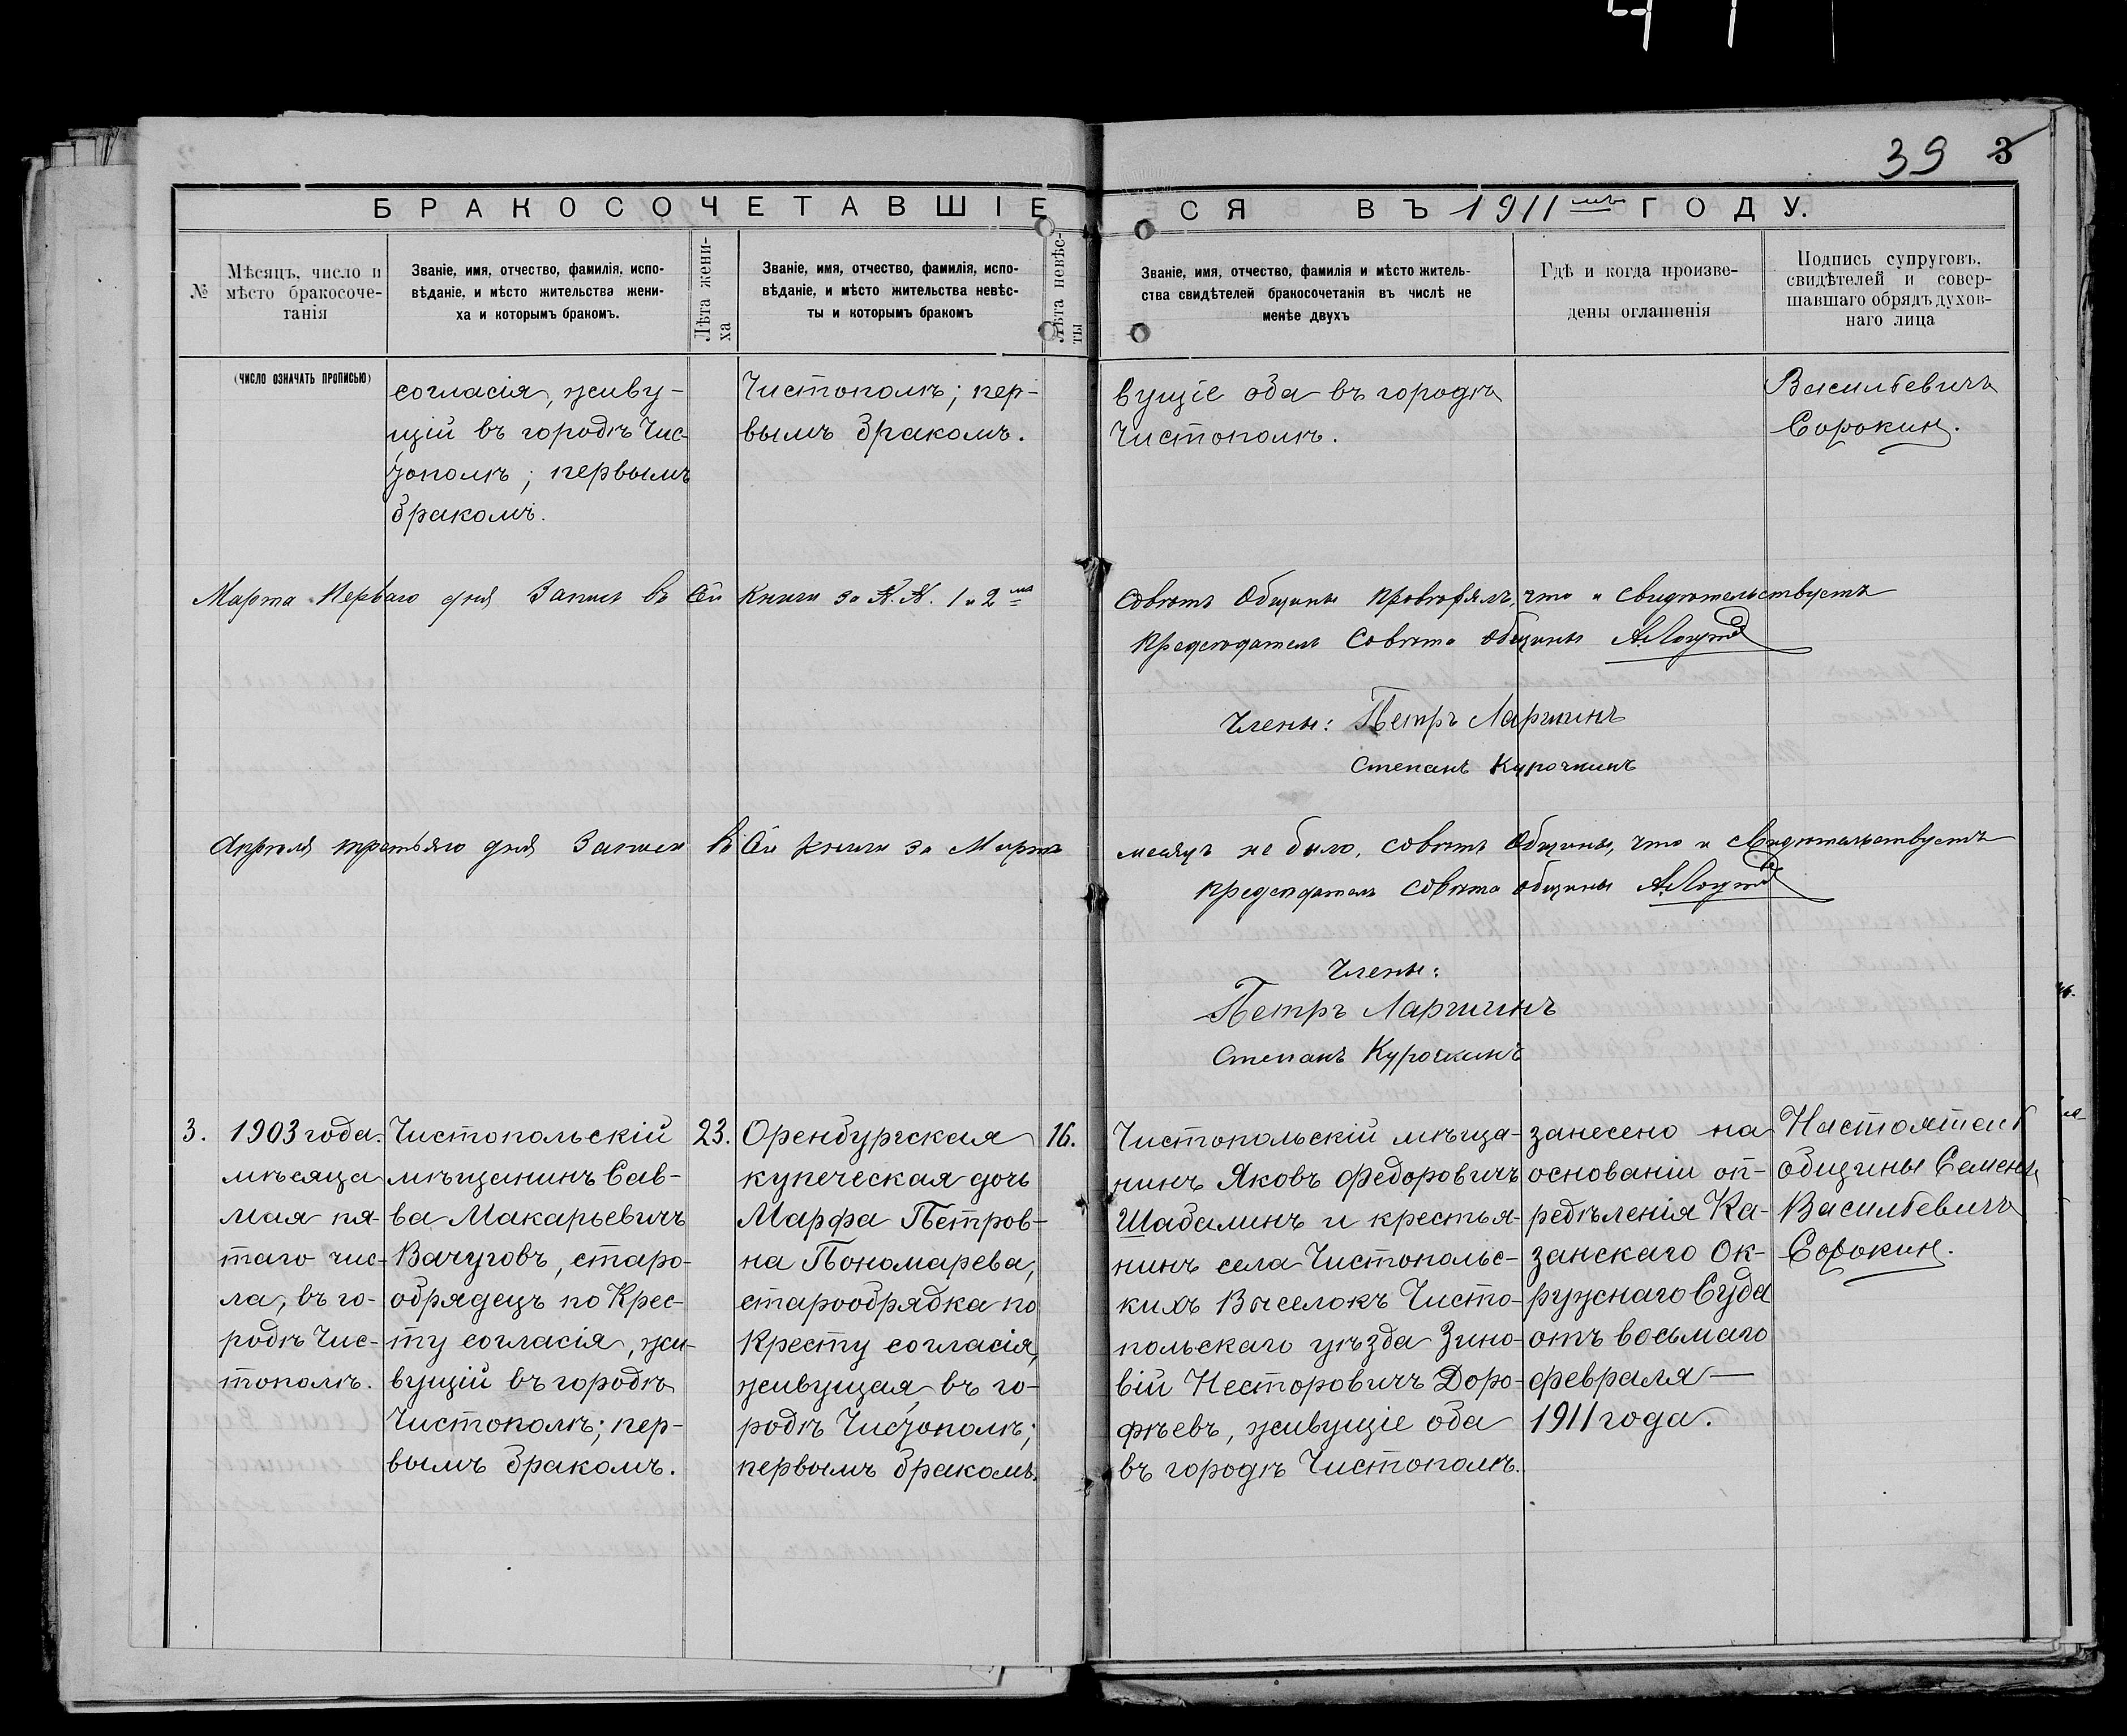 39 3
БРАКОСОЧЕТАВШІЕСЯ ВЪ 1911мъ ГОДУ.
№
Мѣсяцъ, число и
мѣсто бракосоче-
танія
Званіе, имя, отчество, фамилія, испо-
вѣданіе, и мѣсто жительства жени-
ха и которымъ бракомъ.
Лѣта жени-
ха
Званіе, имя, отчество, фамилія, испо-
вѣданіе, и мѣсто жительства невѣс-
ты и которымъ бракомъ
Лѣта невѣс-
ты
Званіе, имя, отчество, фамилія и мѣсто житель-
ства свидѣтелей бракосочетанія въ числѣ не
менѣе двухъ
Гдѣ и когда произве-
дены оглашенія
Подпись супруговъ,
свидѣтелей и совер-
шавшаго обрядъ духов-
наго лица
(ЧИСЛО ОЗНАЧАТЬ ПРОПИСЬЮ)
согласія, живу-
щій въ городѣ Чис-
тополѣ; первымъ
бракомъ.
Чистополѣ; пер-
вымъ бракомъ.
вущіе оба въ городѣ
Чистополѣ.
Васильевичъ
Сорокин.
Марта Перваго дня Запись въ Сей Книги за №.№. 1 и 2мъ Совѣтъ Общины Провѣрялъ, что и Свидѣтельствуетъ
Предсѣдатель Совѣта Общины
Члены: Петръ Ларишинъ
Степанъ Курочкинъ
Апрѣля третьяго дня Записи въ Сей Книги за Мартъ месяцъ не было, Совѣтъ Общины, что и свидѣтельствуетъ
Предсѣдатель Совѣта Общины
Члены:
Петръ Ларишинъ
Степанъ Курочкинъ
3.
1903 года.
мѣсяца
мая пя-
таго чис-
ла, въ го-
родѣ Чис-
тополѣ.
Чистопольскій
мѣщанинъ Сав-
ва Макарьевичъ
Вачуговъ, старо-
обрядецъ по Крес-
ту согласія, жи-
вущій въ городѣ
Чистополѣ; пер-
вымъ бракомъ.
23.
Оренбургская
купеческая дочь
Марфа Петров-
на Пономарева,
старообрядка по
Кресту согласія,
живущая въ го-
родѣ Чистополѣ;
первымъ бракомъ.
16.
Чистопольскій мѣща-
нинъ Яковъ Федоровичъ
Шабалинъ и крестья-
нинъ села Чистопольс-
кихъ Выселокъ Чисто-
польскаго уѣзда Зино-
вій Несторовичъ Доро-
фѣевъ, живущіе оба
въ городѣ Чистополѣ.
занесено на
основаніи оп-
редѣленія Ка-
занскаго Ок-
ружнаго Суда
отъ восьмаго
февраля —
1911 года.
Настоятель
общины Семенъ
Васильевичъ
Сорокин.